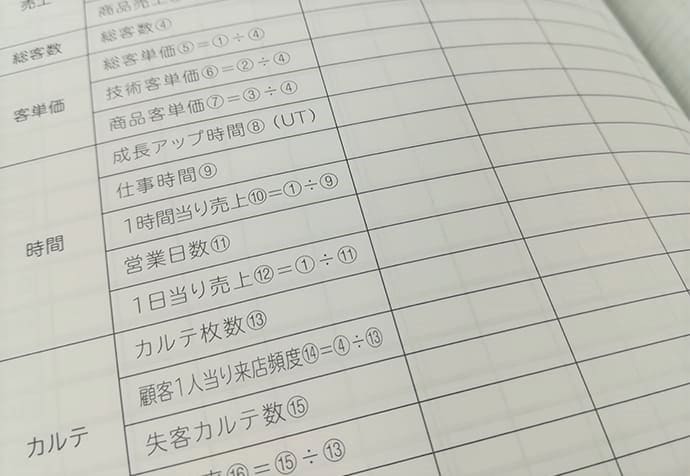 売上
商品売上
総客数
総客数④
客単価
総客単価⑤=①÷④
技術客単価⑥=②÷④
商品客単価⑦=③÷④
時間
成長アップ時間⑧（UT）
仕事時間⑨
1時間当り売上⑩=①÷⑨
営業日数⑪
1日当り売上⑫=①÷⑪
カルテ
カルテ枚数⑬
顧客1人当り来店頻度⑭=④÷⑬
失客カルテ数⑮
⑯=⑮÷⑬